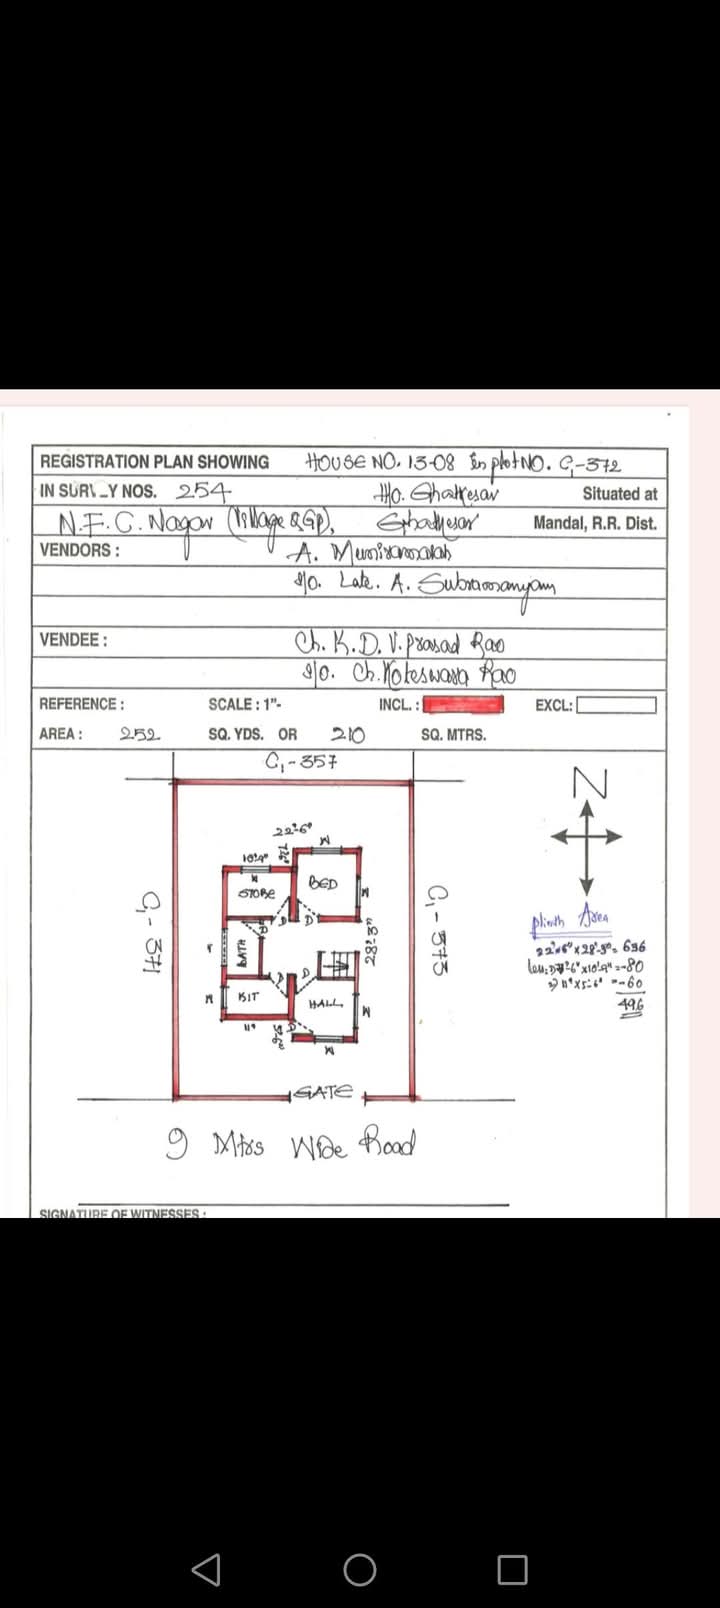 REGISTRATION PLAN SHOWING HOUSE NO. 13-08 in plot NO. C1-372
IN SURVEY NOS. 254 H/o. Ghatkesar Situated at
N.F.C. Nagar (Village & GP), Ghatkesar Mandal, R.R. Dist.
VENDORS : A. Muniramaiah
S/o. Late. A. Subramanyam
VENDEE : Ch. K.D.V. Prasad Rao
S/o. Ch. Koteswara Rao
REFERENCE : SCALE : 1"- INCL. : EXCL:
AREA : 252 SQ. YDS. OR 210 SQ. MTRS.
C1-357
N
22'-6"
10'-9"
7'-6"
W
W
STORE
BED
W
C1-371
C1-373
D
D
D
28'-3"
BATH
D
D
W
KIT
HALL
W
11'
5'-6"
D
W
GATE
Plinth Area
22'-6" x 28'-3" = 636
Less: 1) 7'-6" x 10'-9" = -80
2) 11' x 5'-6" = -60
496
9 Mtrs Wide Road
SIGNATURE OF WITNESSES :